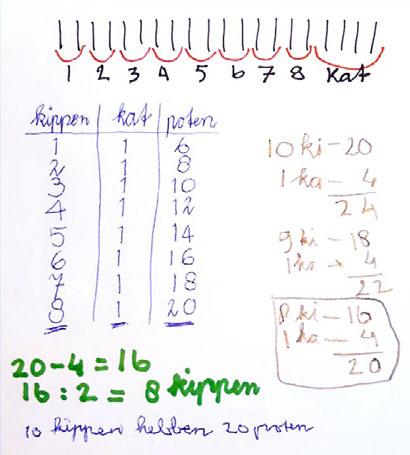 1 2 3 4 5 6 7 8 Kat
kippen kat poten
1 1 6
2 1 8
3 1 10
4 1 12
5 1 14
6 1 16
7 1 18
8 1 20
10 ki - 20
1 ka - 4
24
9 ki - 18
1 ka - 4
22
8 ki - 16
1 ka - 4
20
20 - 4 = 16
16 : 2 = 8 kippen
10 kippen hebben 20 poten